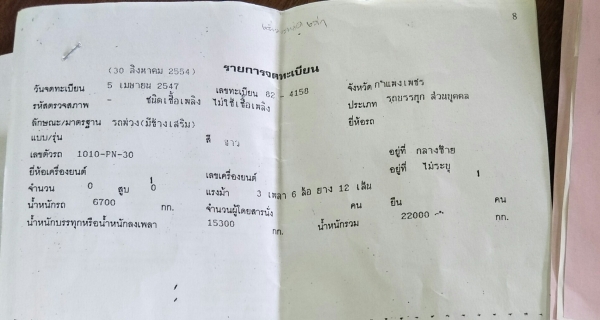 8
(30 สิงหาคม 2554) รายการจดทะเบียน
วันจดทะเบียน 5 เมษายน 2547 เลขทะเบียน 82 - 4158 จังหวัด กำแพงเพชร
รหัสตรวจสภาพ - ชนิดเชื้อเพลิง ไม่ใช้เชื้อเพลิง ประเภท รถบรรทุก ส่วนบุคคล
ลักษณะ/มาตรฐาน รถพ่วง(มีข้างเสริม) ยี่ห้อรถ
แบบ/รุ่น สี ขาว
เลขตัวรถ 1010-PN-30 อยู่ที่ กลางซ้าย
ยี่ห้อเครื่องยนต์ เลขเครื่องยนต์ อยู่ที่ ไม่ระบุ
จำนวน 0 สูบ 0 แรงม้า 3 เพลา 6 ล้อ ยาง 12 เส้น
น้ำหนักรถ 6700 กก. จำนวนผู้โดยสารนั่ง คน ยืน คน
น้ำหนักบรรทุกหรือน้ำหนักลงเพลา 15300 กก. น้ำหนักรวม 22000 กก.